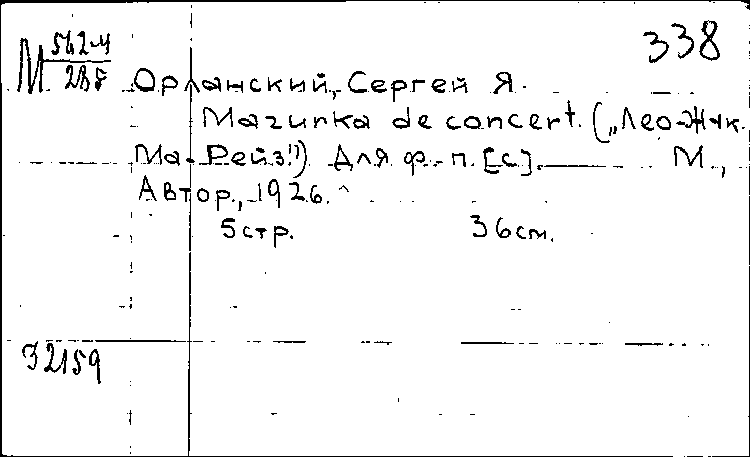 338
М 562-4
287
Орланский, Сергей Я.
Mazurka de concert. („Лео-Жак.
Ма-Рейз") Для ф.-п. [c]. М.,
Автор, 1926.
5 стр. 36 см.
32159